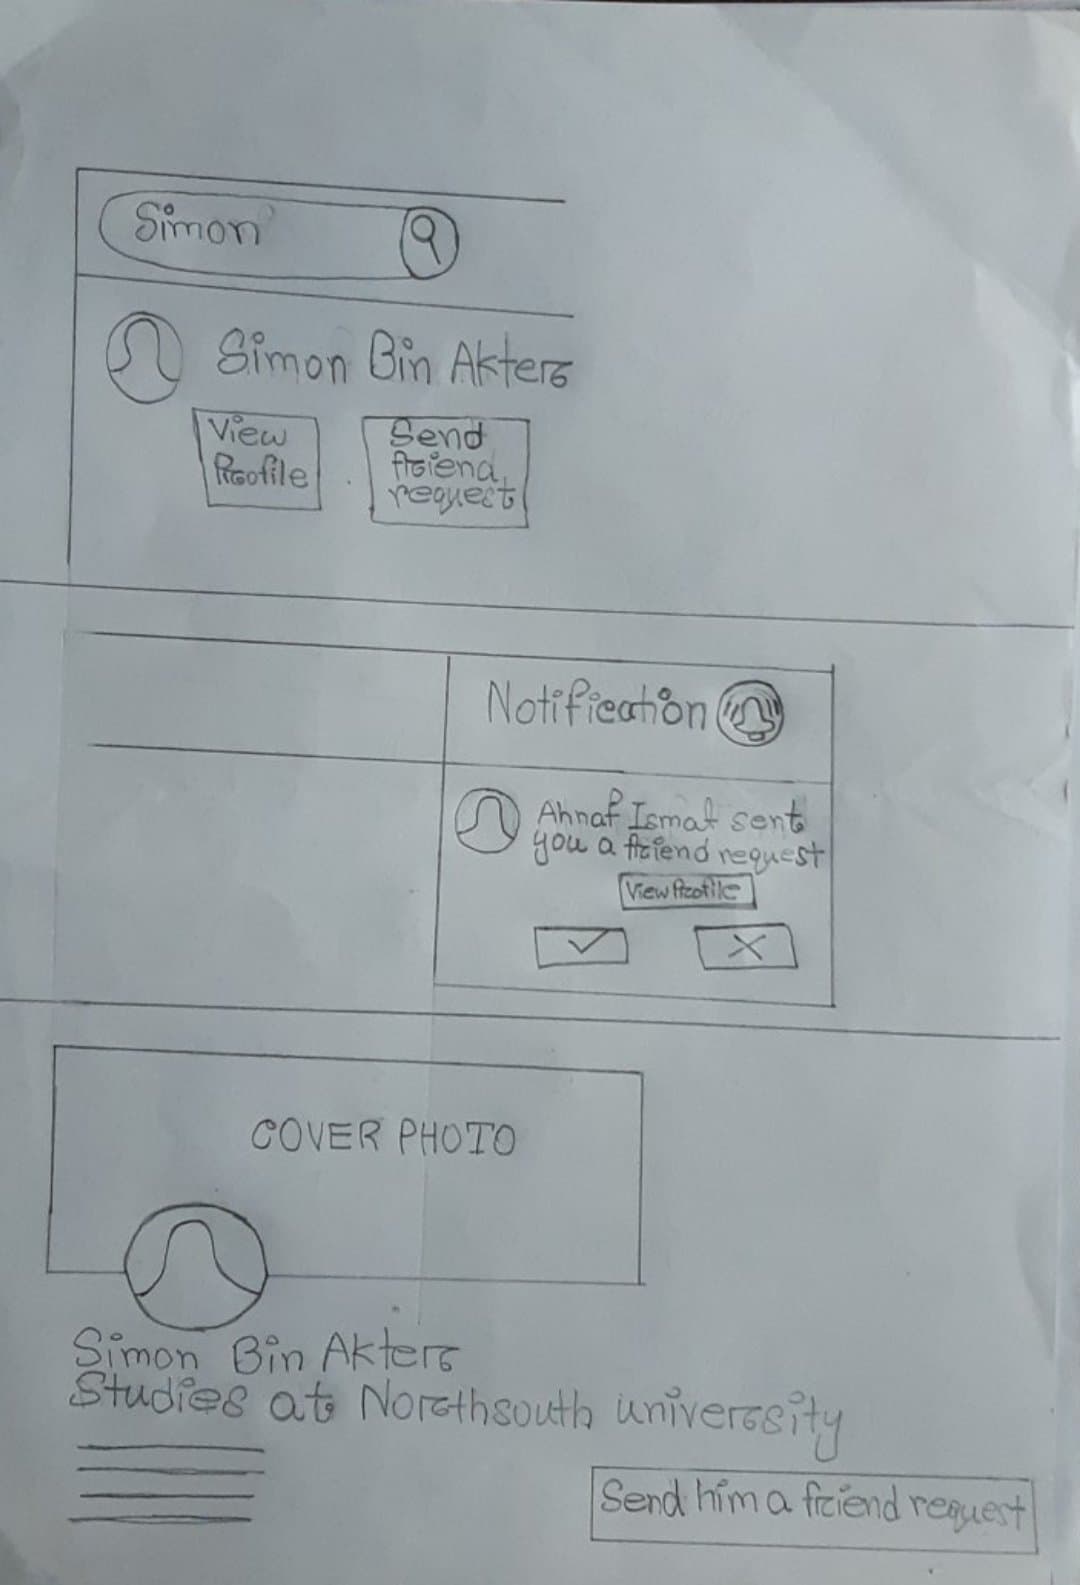 Simon
Simon Bin Akter
View
Profile
Send
friend
request
Notification
Ahnaf Ismat sent
you a friend request
View Profile
COVER PHOTO
Simon Bin Akter
Studies at Northsouth university
Send him a friend request